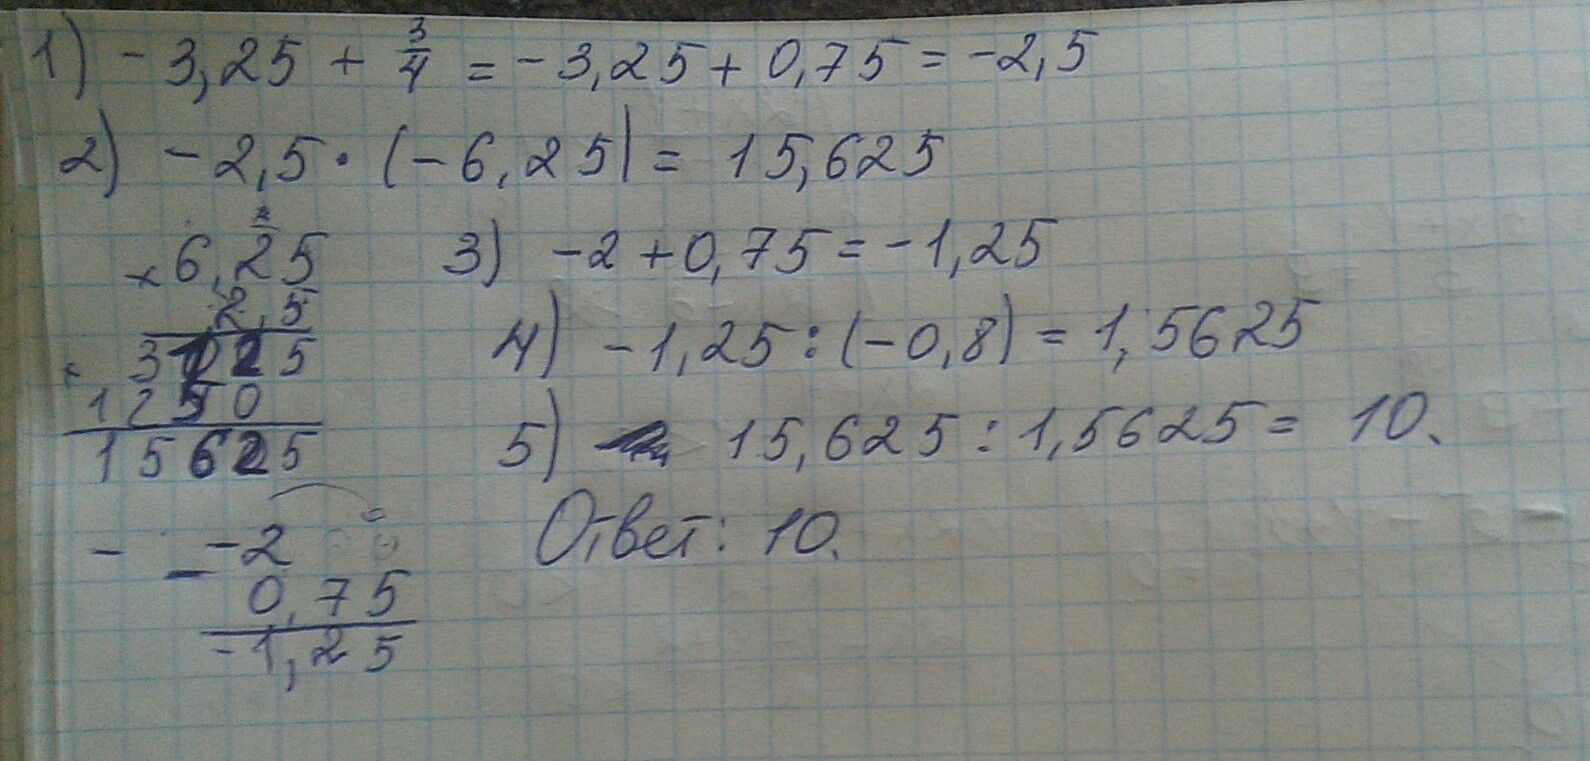 1) -3,25 + 3/4 = -3,25 + 0,75 = -2,5
2) -2,5 · (-6,25) = 15,625
× 6,25
2,5
3125
1250
15625
3) -2 + 0,75 = -1,25
4) -1,25 : (-0,8) = 1,5625
5) 15,625 : 1,5625 = 10.
Ответ: 10.
- -2
0,75
-1,25